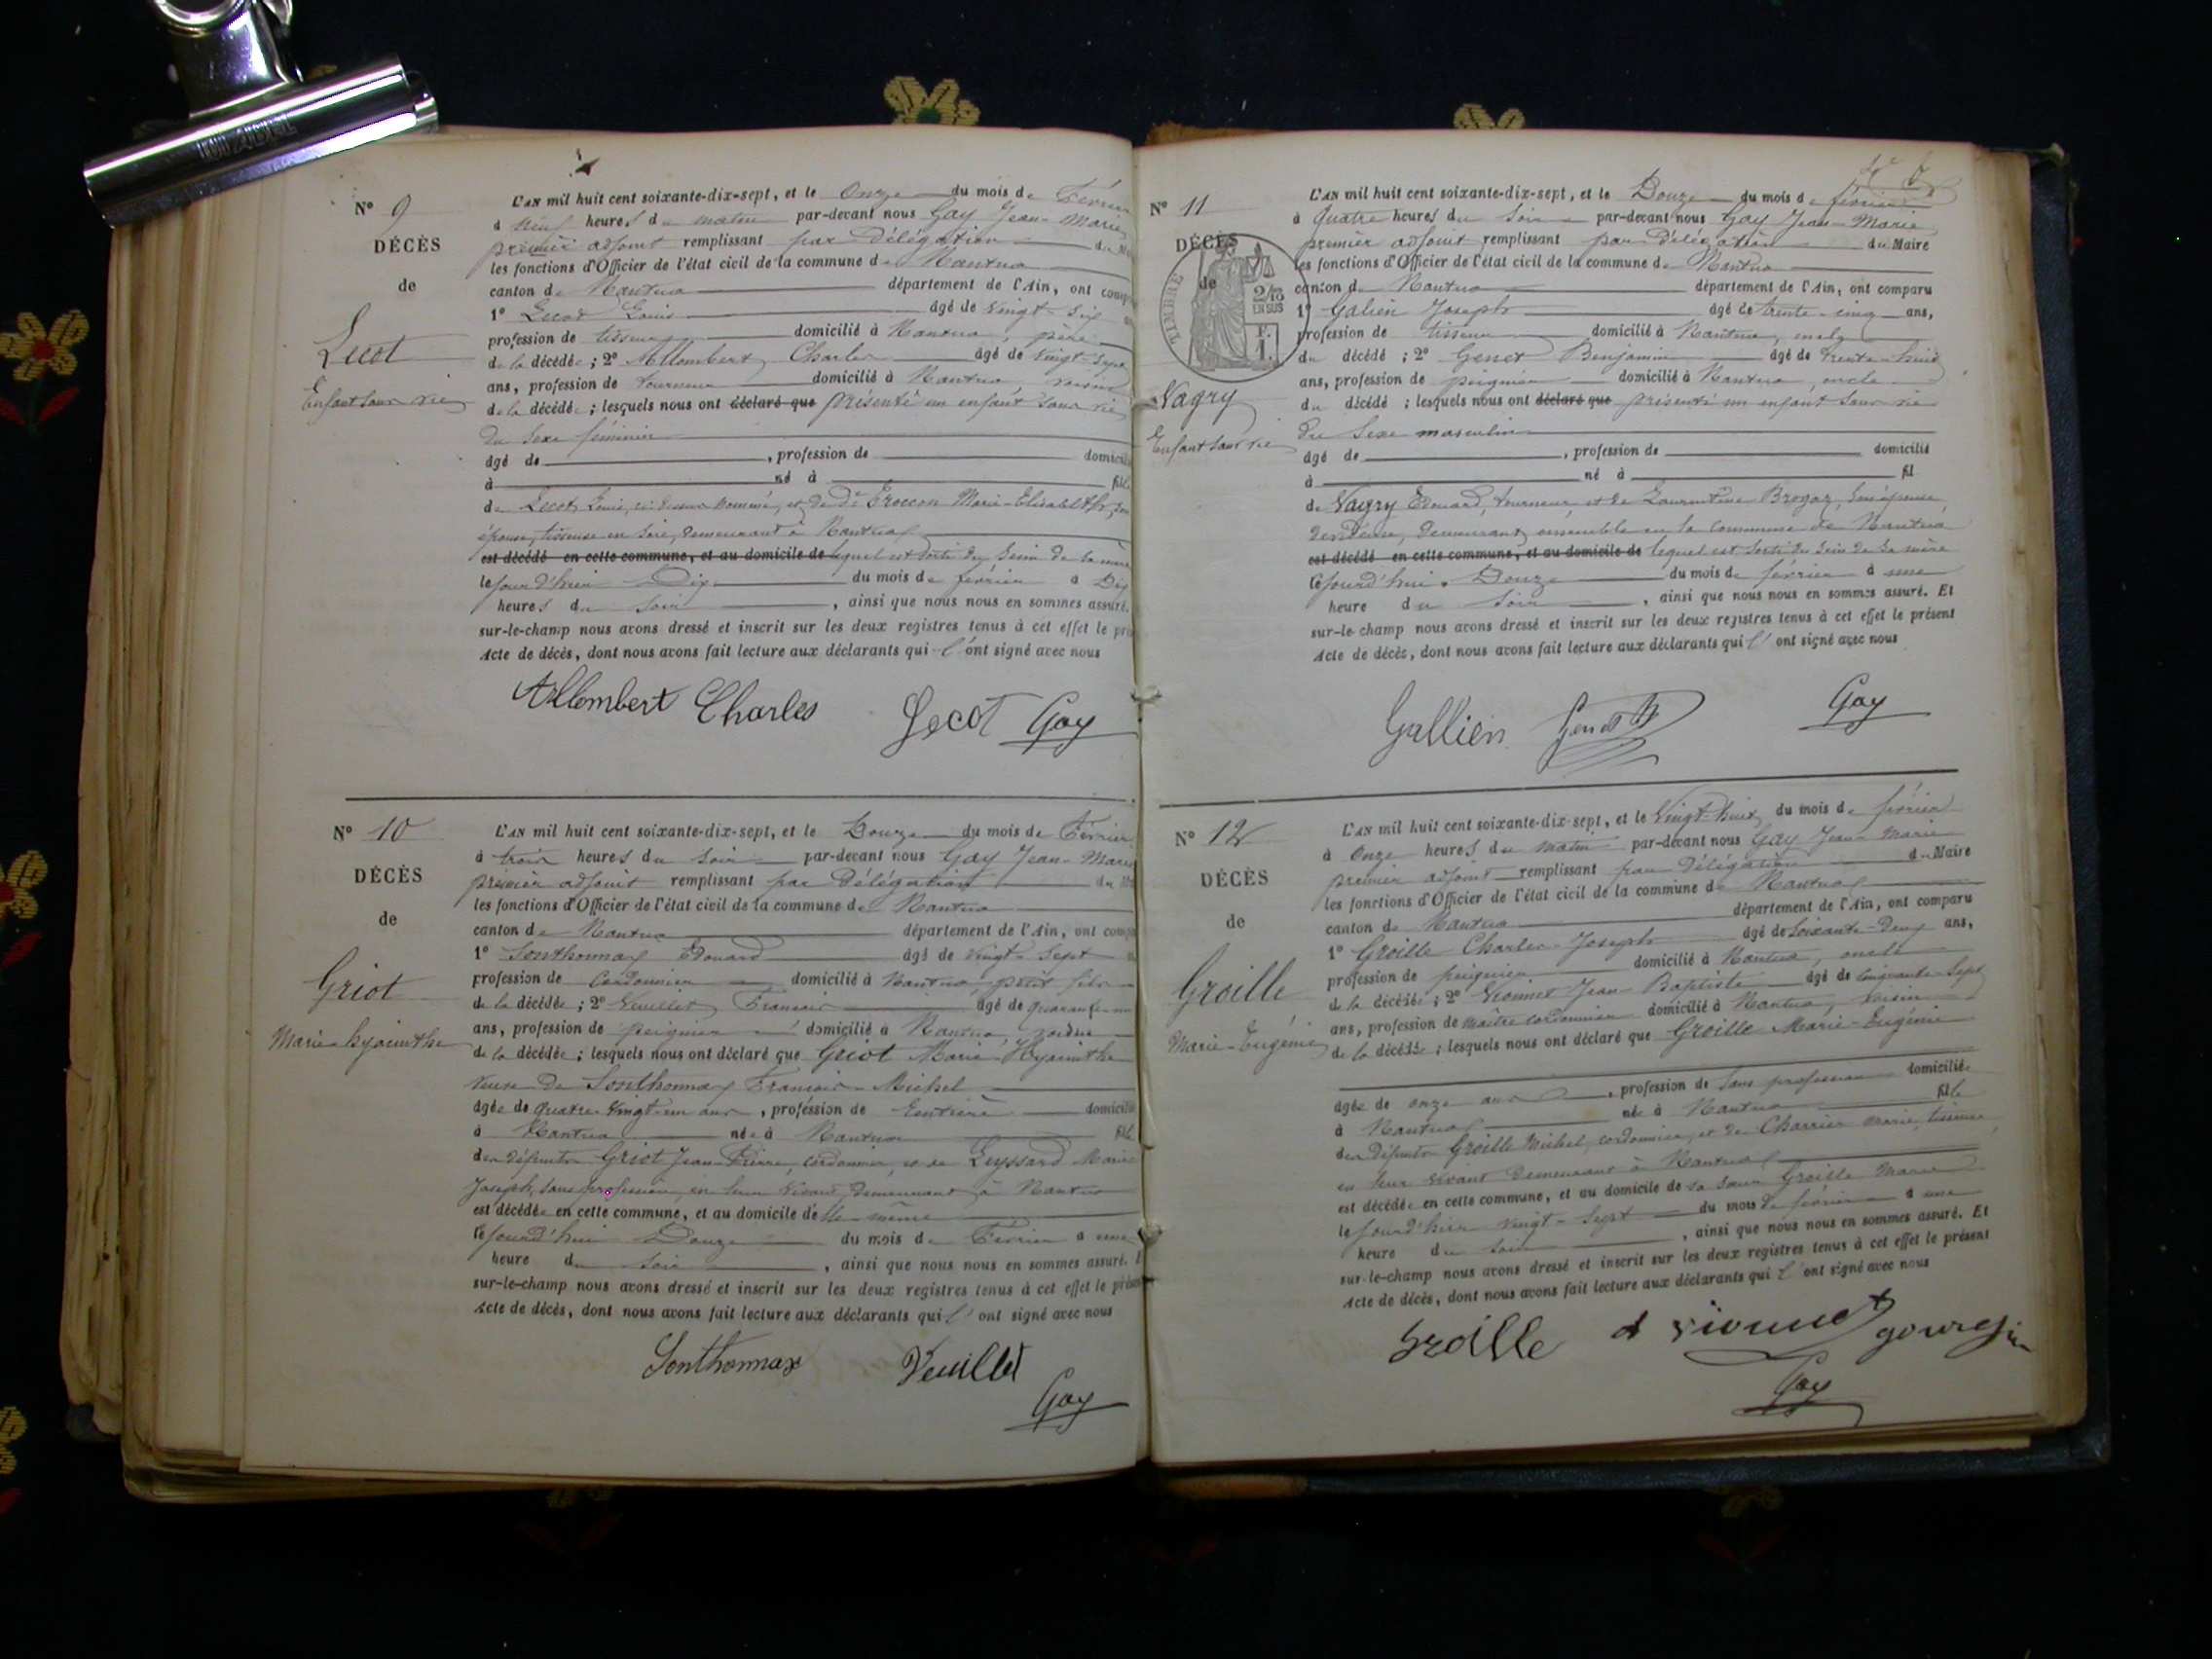 N° 9
DÉCÈS
de
Lecot
Enfant sans vie
L'AN mil huit cent soixante-dix-sept, et le Onze du mois de Février
à neuf heures du matin par-devant nous Gay Jean-Marie
premier adjoint remplissant par délégation du
les fonctions d'Officier de l'état civil de la commune de Nantua
canton de Nantua département de l'Ain, ont
1° Lecot Louis âgé de vingt-six
profession de tisseur domicilié à Nantua, père
de la décédée ; 2° Allombert Charles âgé de vingt-sept
ans, profession de tourneur domicilié à Nantua, voisin
de la décédée ; lesquels nous ont déclaré que présenté un enfant sans vie
du sexe féminin
âgé de , profession de domicilié
à né à fille
de Lecot Louis, ci-dessus nommé, et de De Marie-Elisabeth, son
épouse, tisseuse en soie, demeurant à Nantua
est décédé en cette commune, et au domicile de lequel est sorti du sein de la mère
le jourd'hier Dix du mois de février à Dix
heures du soir , ainsi que nous nous en sommes assuré.
sur-le-champ nous avons dressé et inscrit sur les deux registres tenus à cet effet le
Acte de décès, dont nous avons fait lecture aux déclarants qui l'ont signé avec nous
Allombert Charles Lecot Gay
N° 10
DÉCÈS
de
Griot
Marie-hyacinthe
L'AN mil huit cent soixante-dix-sept, et le Douze du mois de Février
à trois heures du soir par-devant nous Gay Jean-Marie
premier adjoint remplissant par délégation du
les fonctions d'Officier de l'état civil de la commune de Nantua
canton de Nantua département de l'Ain, ont
1° Sonthonnax Edouard âgé de vingt-sept
profession de Cordonnier domicilié à Nantua, petit fils
de la décédée ; 2° Veuillet François âgé de quarante-un
ans, profession de peignier domicilié à Nantua, voisin
de la décédée ; lesquels nous ont déclaré que Griot Marie-Hyacinthe
veuve de Sonthonnax François-Michel
âgée de quatre-vingt-un ans , profession de Rentière domicilié
à Nantua née à Nantua fille
des défunts Griot Jean-Pierre, cordonnier, et de Leyssard Marie
Joseph, sans profession, en leur vivant demeurant à Nantua
est décédée en cette commune, et au domicile d'elle-même
le jourd'hui Douze du mois de Février à une
heure du soir , ainsi que nous nous en sommes assuré.
sur-le-champ nous avons dressé et inscrit sur les deux registres tenus à cet effet le présent
Acte de décès, dont nous avons fait lecture aux déclarants qui l'ont signé avec nous
Sonthonnax Veuillet
Gay
N° 11
DÉCÈS
de
TIMBRE
2/10
EN SUS
F.
1.
Vagry
Enfant sans vie
L'AN mil huit cent soixante-dix-sept, et le Douze du mois de février
à Quatre heures du soir par-devant nous Gay Jean-Marie
premier adjoint remplissant par délégation du Maire
les fonctions d'Officier de l'état civil de la commune de Nantua
canton de Nantua département de l'Ain, ont comparu
1° Galien Joseph âgé de trente-cinq ans,
profession de tisseur domicilié à Nantua, oncle
du décédé ; 2° Genet Benjamin âgé de trente-huit
ans, profession de peignier domicilié à Nantua, oncle
du décédé ; lesquels nous ont déclaré que présenté un enfant sans vie
du sexe masculin
âgé de , profession de domicilié
à né à fil
de Vagry Edouard, tourneur et de Laurentine Brogoz, son épouse
demeurant ensemble en la commune de Nantua
est décédé en cette commune, et au domicile de lequel est sorti du sein de sa mère
le jourd'hui Douze du mois de février à une
heure du soir , ainsi que nous nous en sommes assuré. Et
sur-le-champ nous avons dressé et inscrit sur les deux registres tenus à cet effet le présent
Acte de décès, dont nous avons fait lecture aux déclarants qui l'ont signé avec nous
Gallien Genet B Gay
N° 12
DÉCÈS
de
Groille
Marie-Eugénie
L'AN mil huit cent soixante-dix-sept, et le Vingt-huit du mois de février
à Onze heures du matin par-devant nous Gay Jean-Marie
premier adjoint remplissant par délégation du Maire
les fonctions d'Officier de l'état civil de la commune de Nantua
canton de Nantua département de l'Ain, ont comparu
1° Groille Charles-Joseph âgé de soixante-deux ans,
profession de peignier domicilié à Nantua, oncle
de la décédée ; 2° Vionnet Jean-Baptiste âgé de cinquante-sept
ans, profession de maître cordonnier domicilié à Nantua, voisin
de la décédée ; lesquels nous ont déclaré que Groille Marie-Eugénie
âgée de onze ans , profession de sans profession domiciliée
à Nantua née à Nantua fille
des défunts Groille Michel, cordonnier, et de Charrier Marie, tisseuse,
en leur vivant demeurant à Nantua
est décédée en cette commune, et au domicile de sa sœur Groille Marie
le jourd'hier vingt-sept du mois de février à une
heure du soir , ainsi que nous nous en sommes assuré. Et
sur-le-champ nous avons dressé et inscrit sur les deux registres tenus à cet effet le présent
Acte de décès, dont nous avons fait lecture aux déclarants qui l'ont signé avec nous
Groille vionnet
Gay